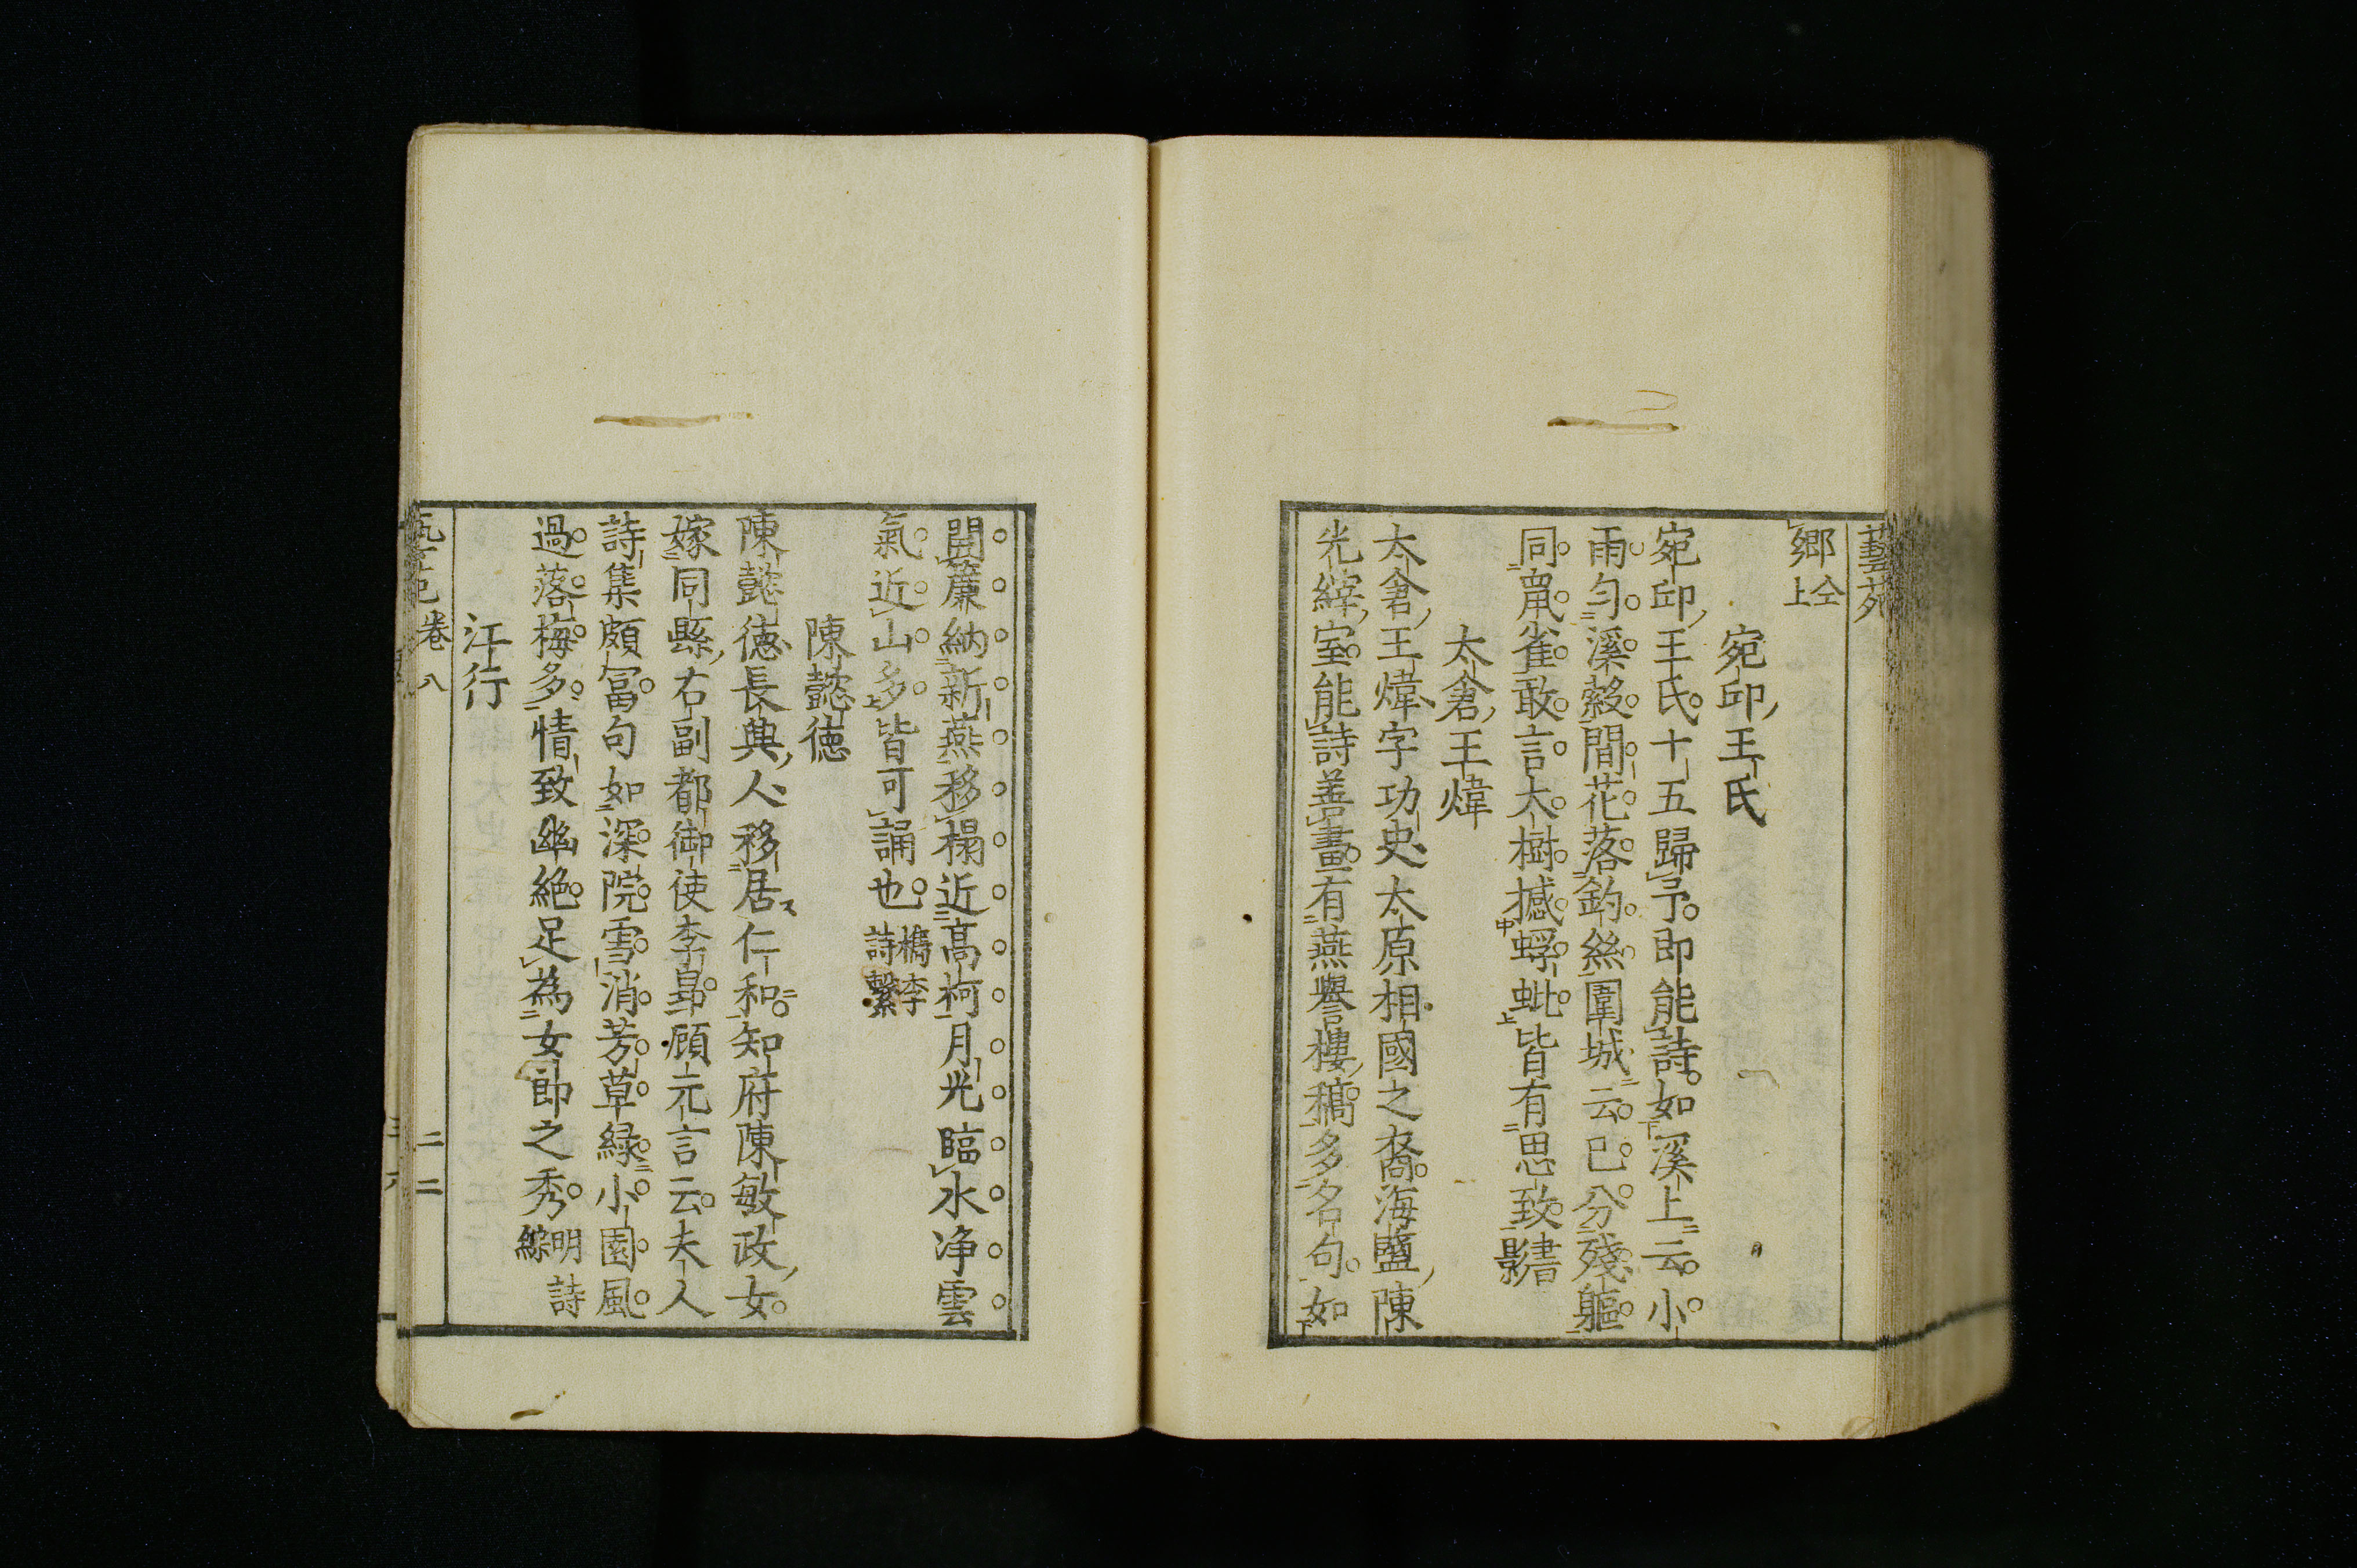 藝苑
鄉仝上
宛邱王氏
宛邱王氏十五歸予即能詩如溪上云小
雨勻溪縠間花落釣絲圍城云已分殘軀
同鼠雀敢言大樹撼蜉蚍皆有思致書影
太倉王煒
太倉王煒字功史太原相國之裔海鹽陳
光縡室能詩善畫有燕譽樓稿多名句如
開簾納新燕移榻近高柯月光臨水净雲
氣近山多皆可誦也檇李詩繫
陳懿德
陳懿德長興人移居仁和知府陳敏政女
嫁同縣右副都御使李昴顧元言云夫人
詩集頗富句如深院雪消芳草綠小園風
過落梅多情致幽絕足為女郎之秀明詩綜
江行
卷八
二二